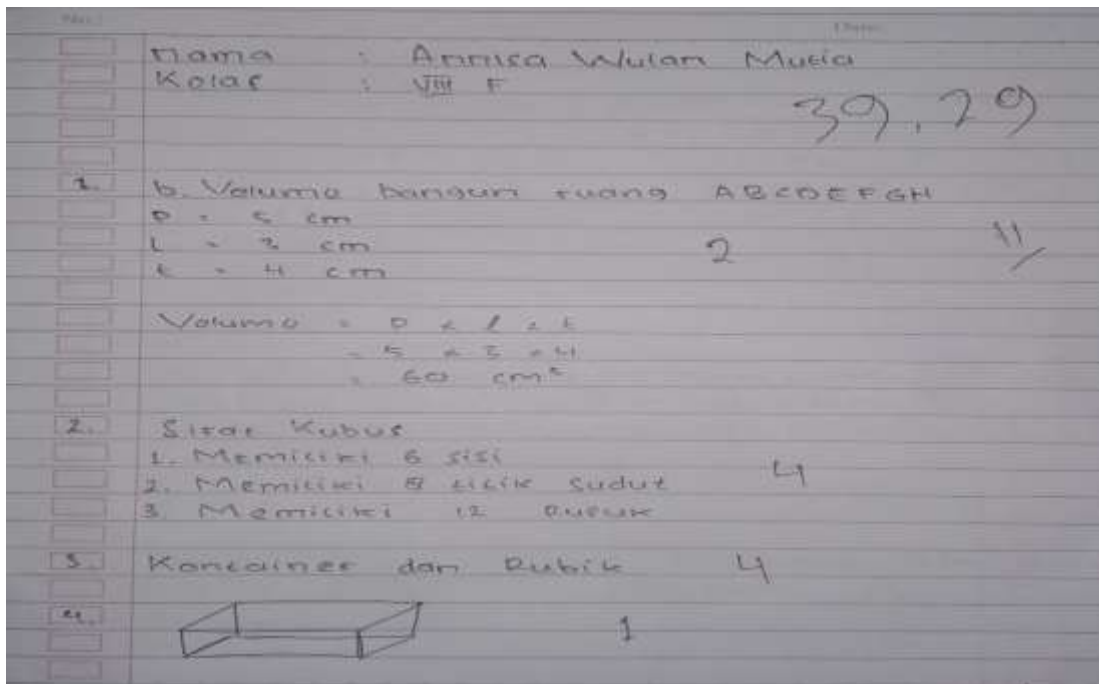 No.:
Date:
Nama : Annisa Wulan Mutia
Kelas : VIII F
39,29
1. b. Volume bangun ruang ABCDEFGH
P = 5 cm
l = 3 cm
2
11/
t = 4 cm
Volume = P x l x t
= 5 x 3 x 4
= 60 cm³
2. Sifat Kubus
1. Memiliki 6 sisi
4
2. Memiliki 8 titik sudut
3. Memiliki 12 rusuk
3. Kontainer dan Rubik 4
4. 1